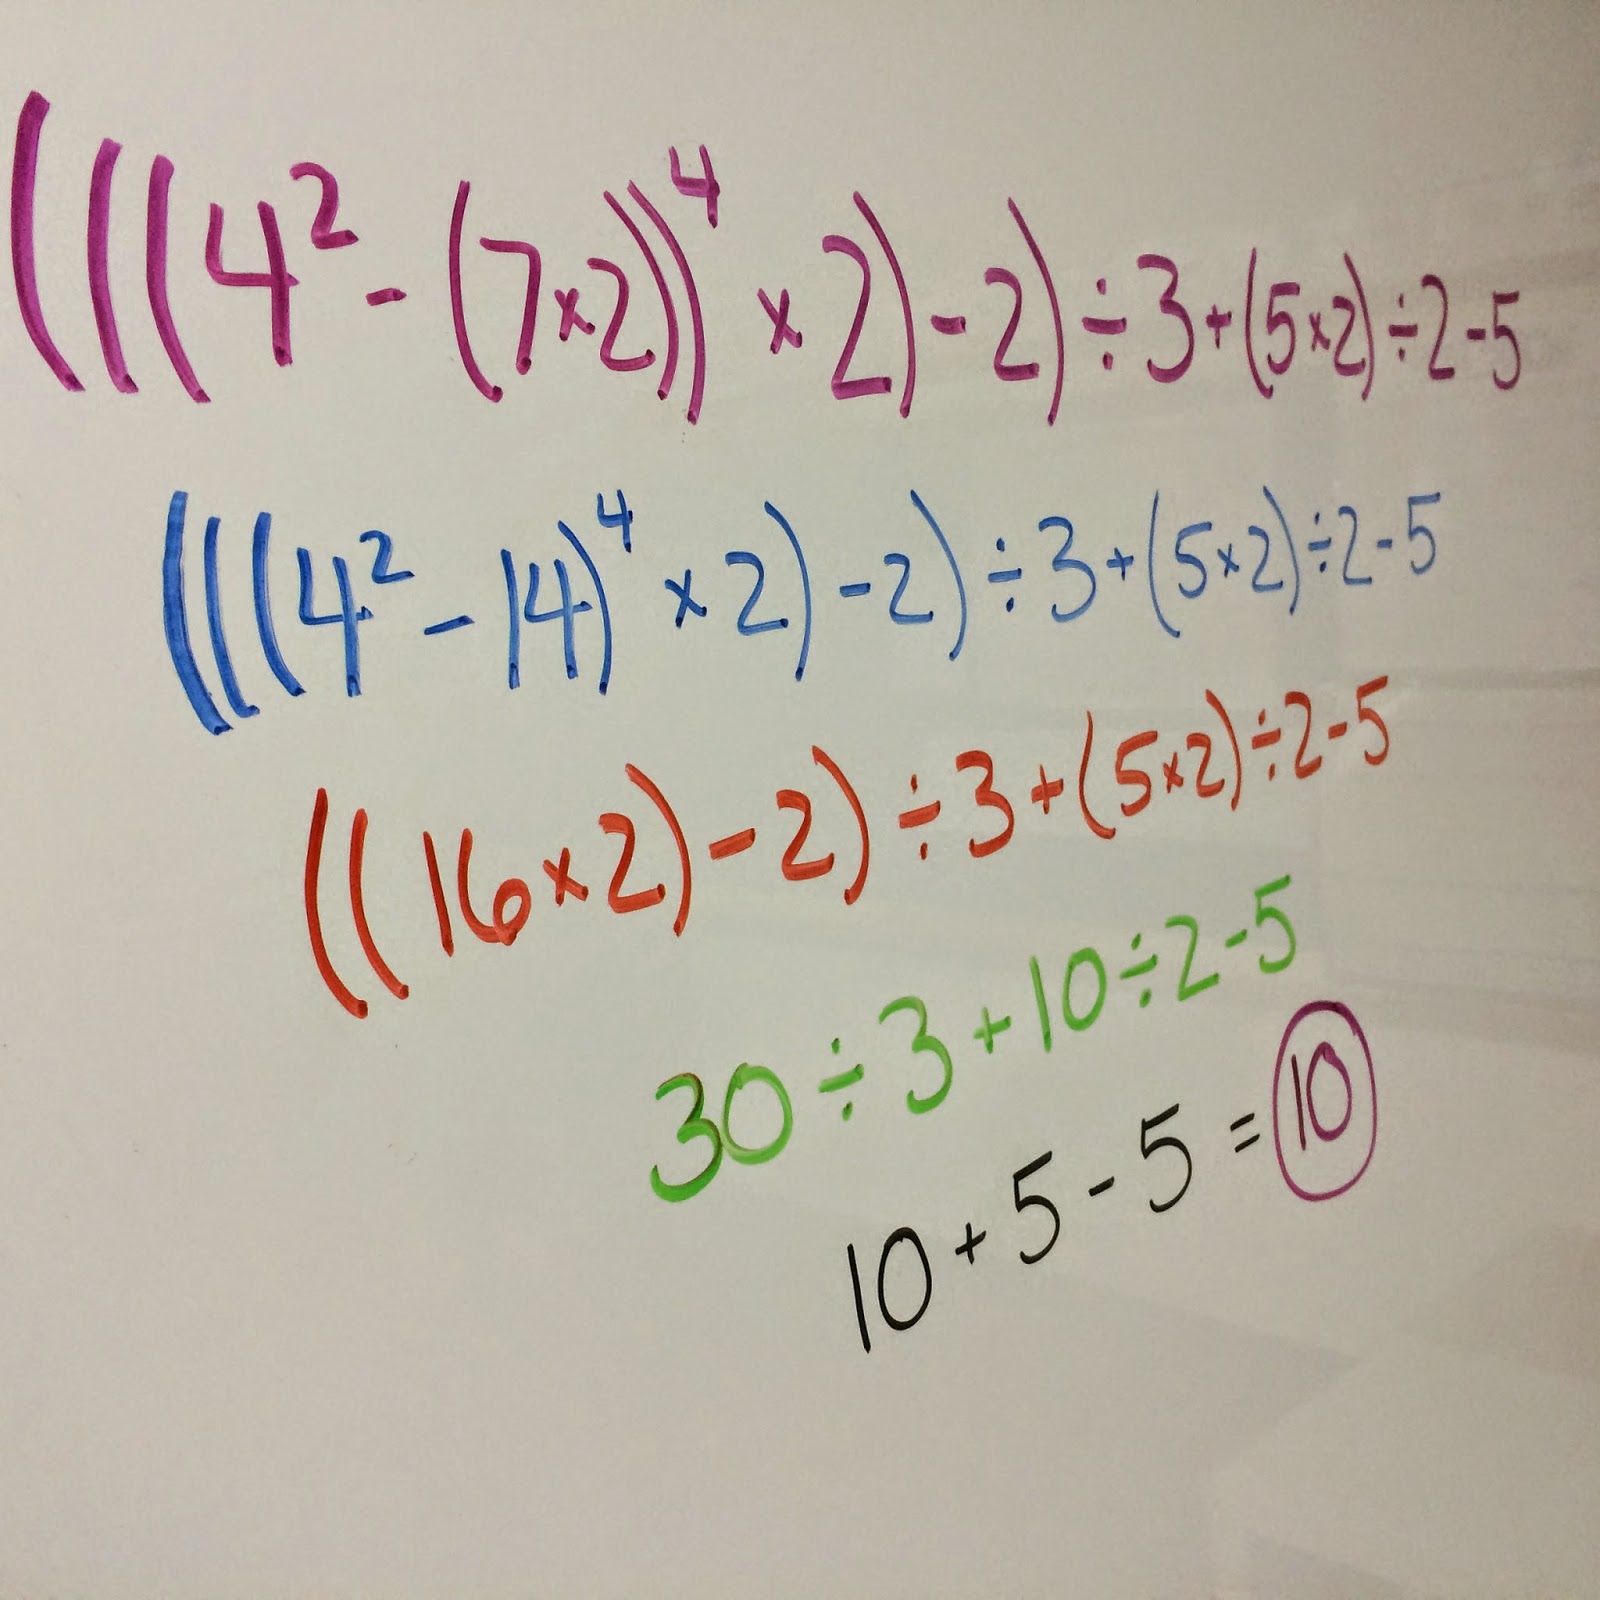 (((4² - (7×2))⁴ × 2) - 2) ÷ 3 + (5×2) ÷ 2 - 5
(((4² - 14)⁴ × 2) - 2) ÷ 3 + (5×2) ÷ 2 - 5
((16 × 2) - 2) ÷ 3 + (5×2) ÷ 2 - 5
30 ÷ 3 + 10 ÷ 2 - 5
10 + 5 - 5 = 10